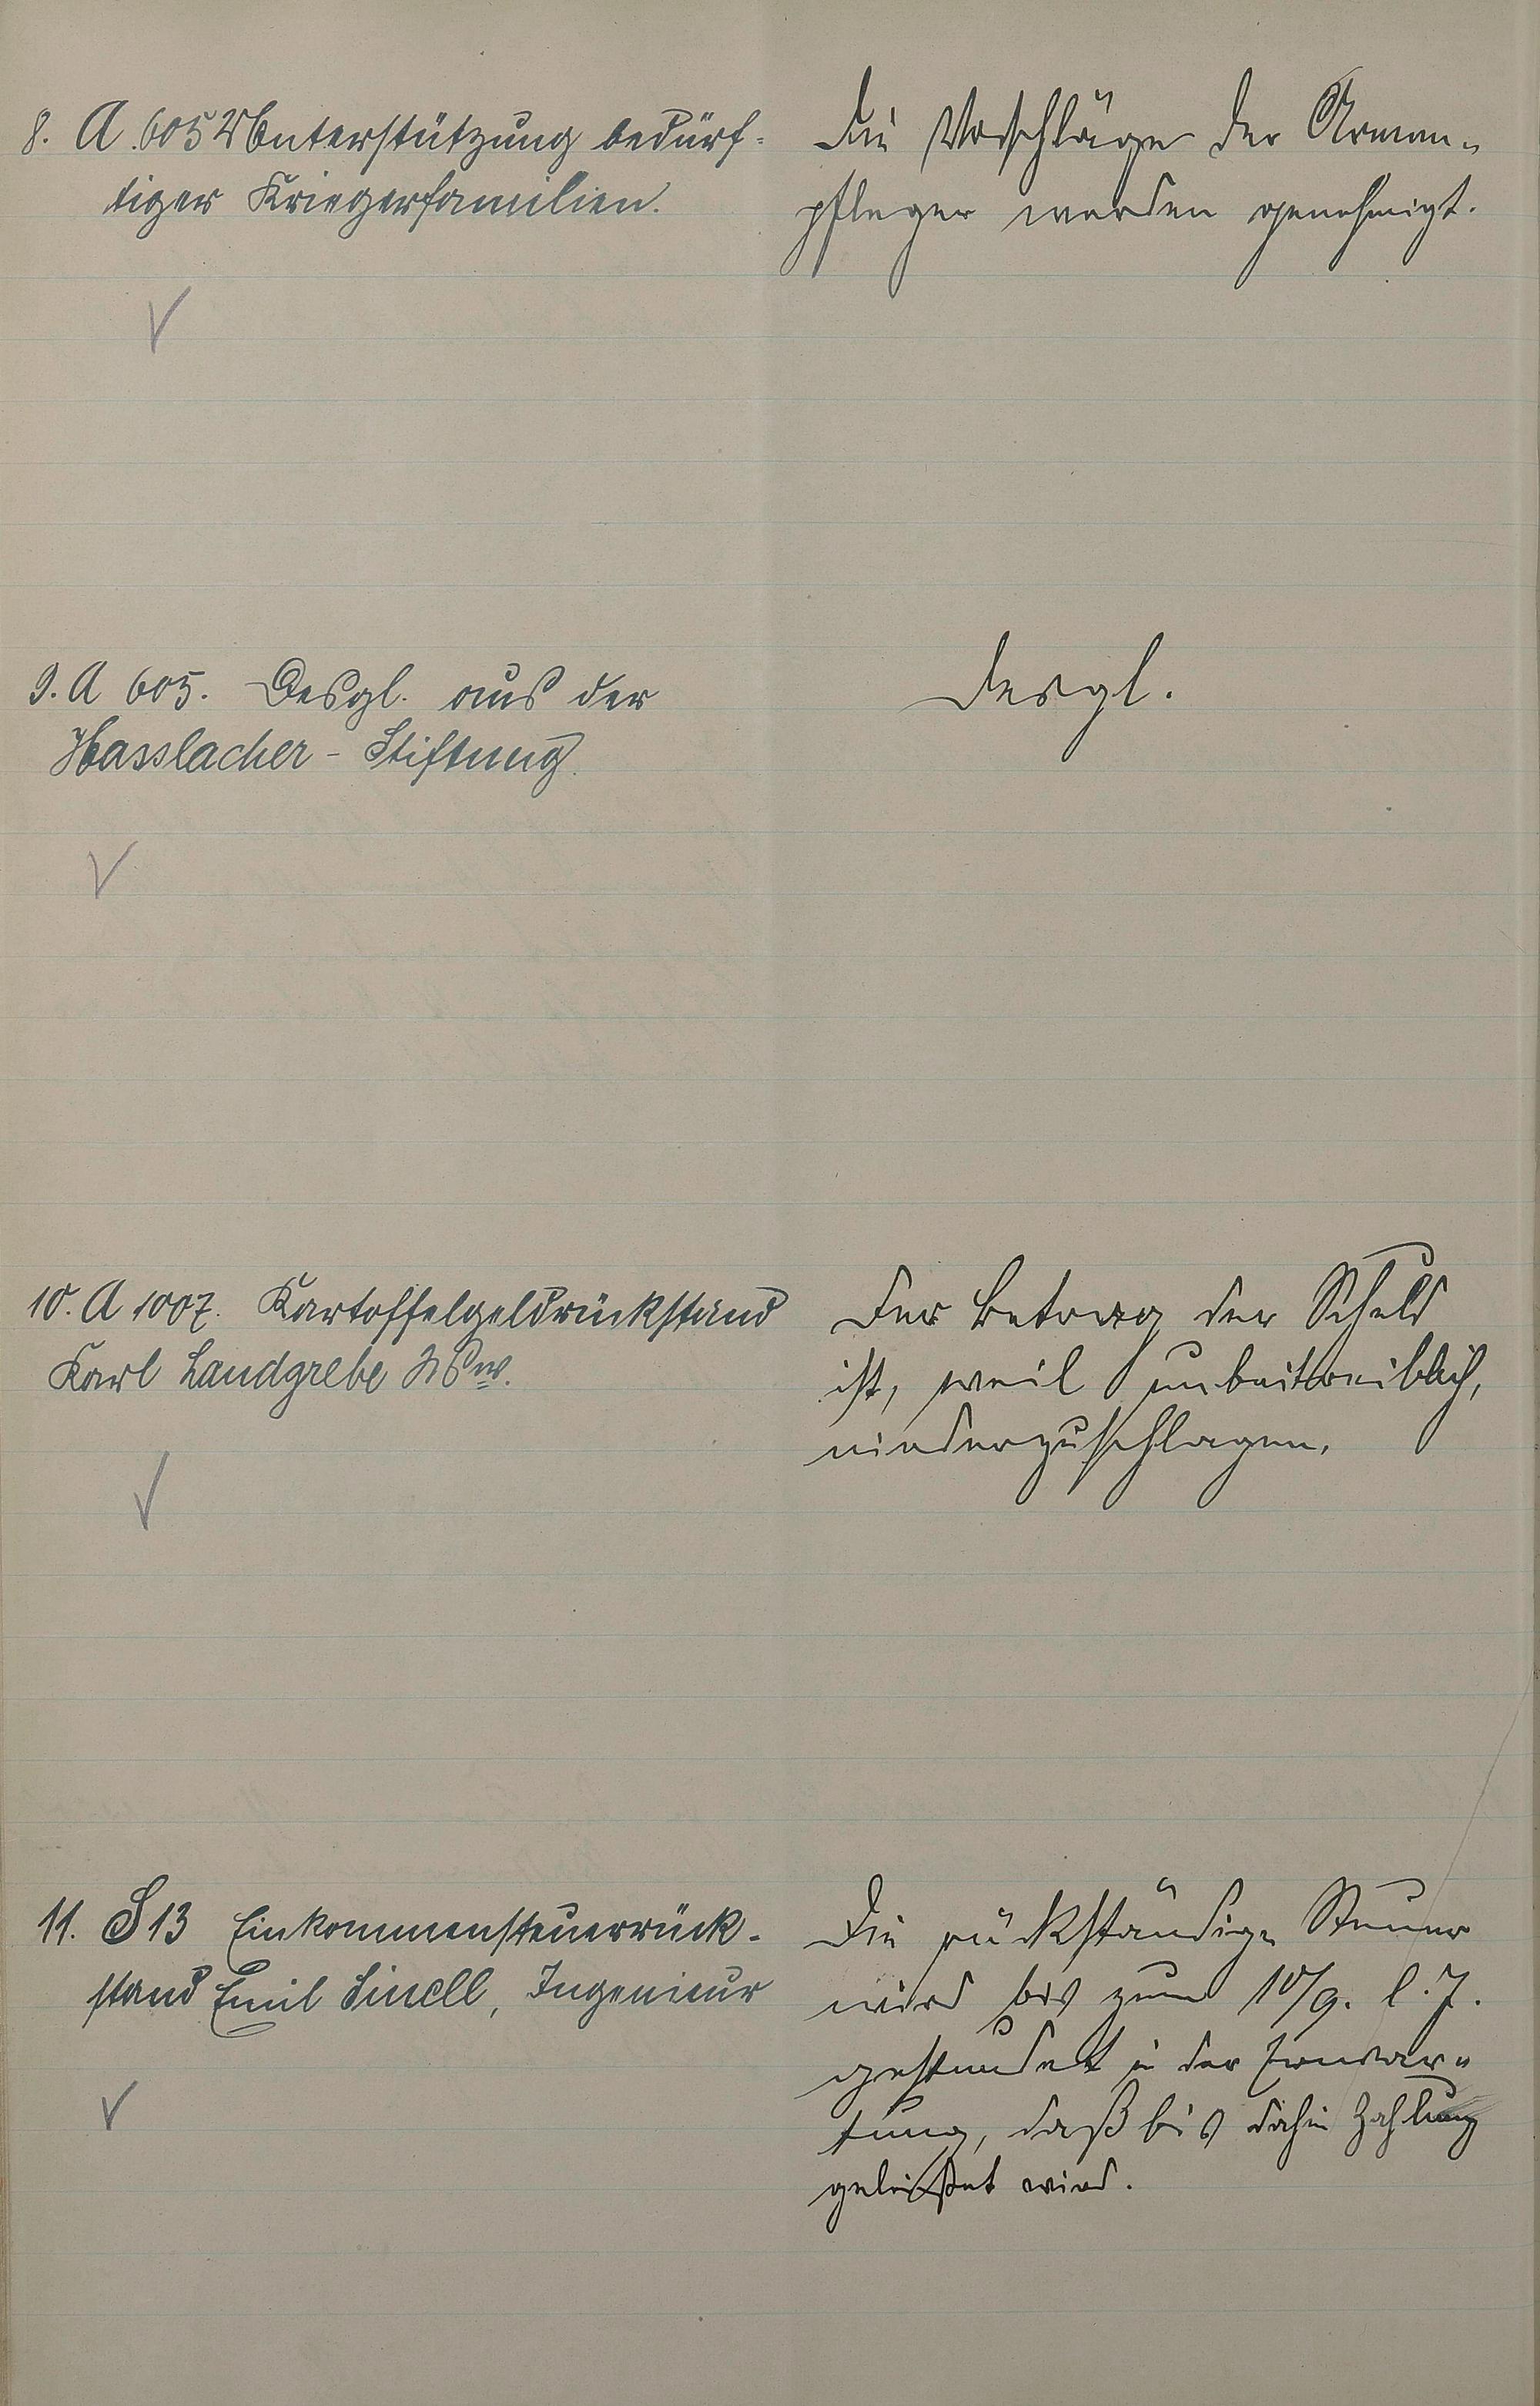 8. A. 605 Unterstützung bedürf-
tiger Kriegerfamilien.
Die Vorschläge der Armen-
pfleger werden genehmigt.
9. A 605. Desgl. aus der
Hasslacher-Stiftung.
Desgl.
10. A 1007. Kartoffelgeldrückstand
Karl Landgrebe
Der Betrag der Schuld
ist, weil unbeitreiblich,
niederzuschlagen.
11. S 13 Einkommensteuerrück-
stand Emil Sinell, Ingenieur
Die rückständige Steuer
wird bis zum 10/9. l. J.
gestundet in der Erwar-
tung, daß bis dahin Zahlung
geleistet wird.